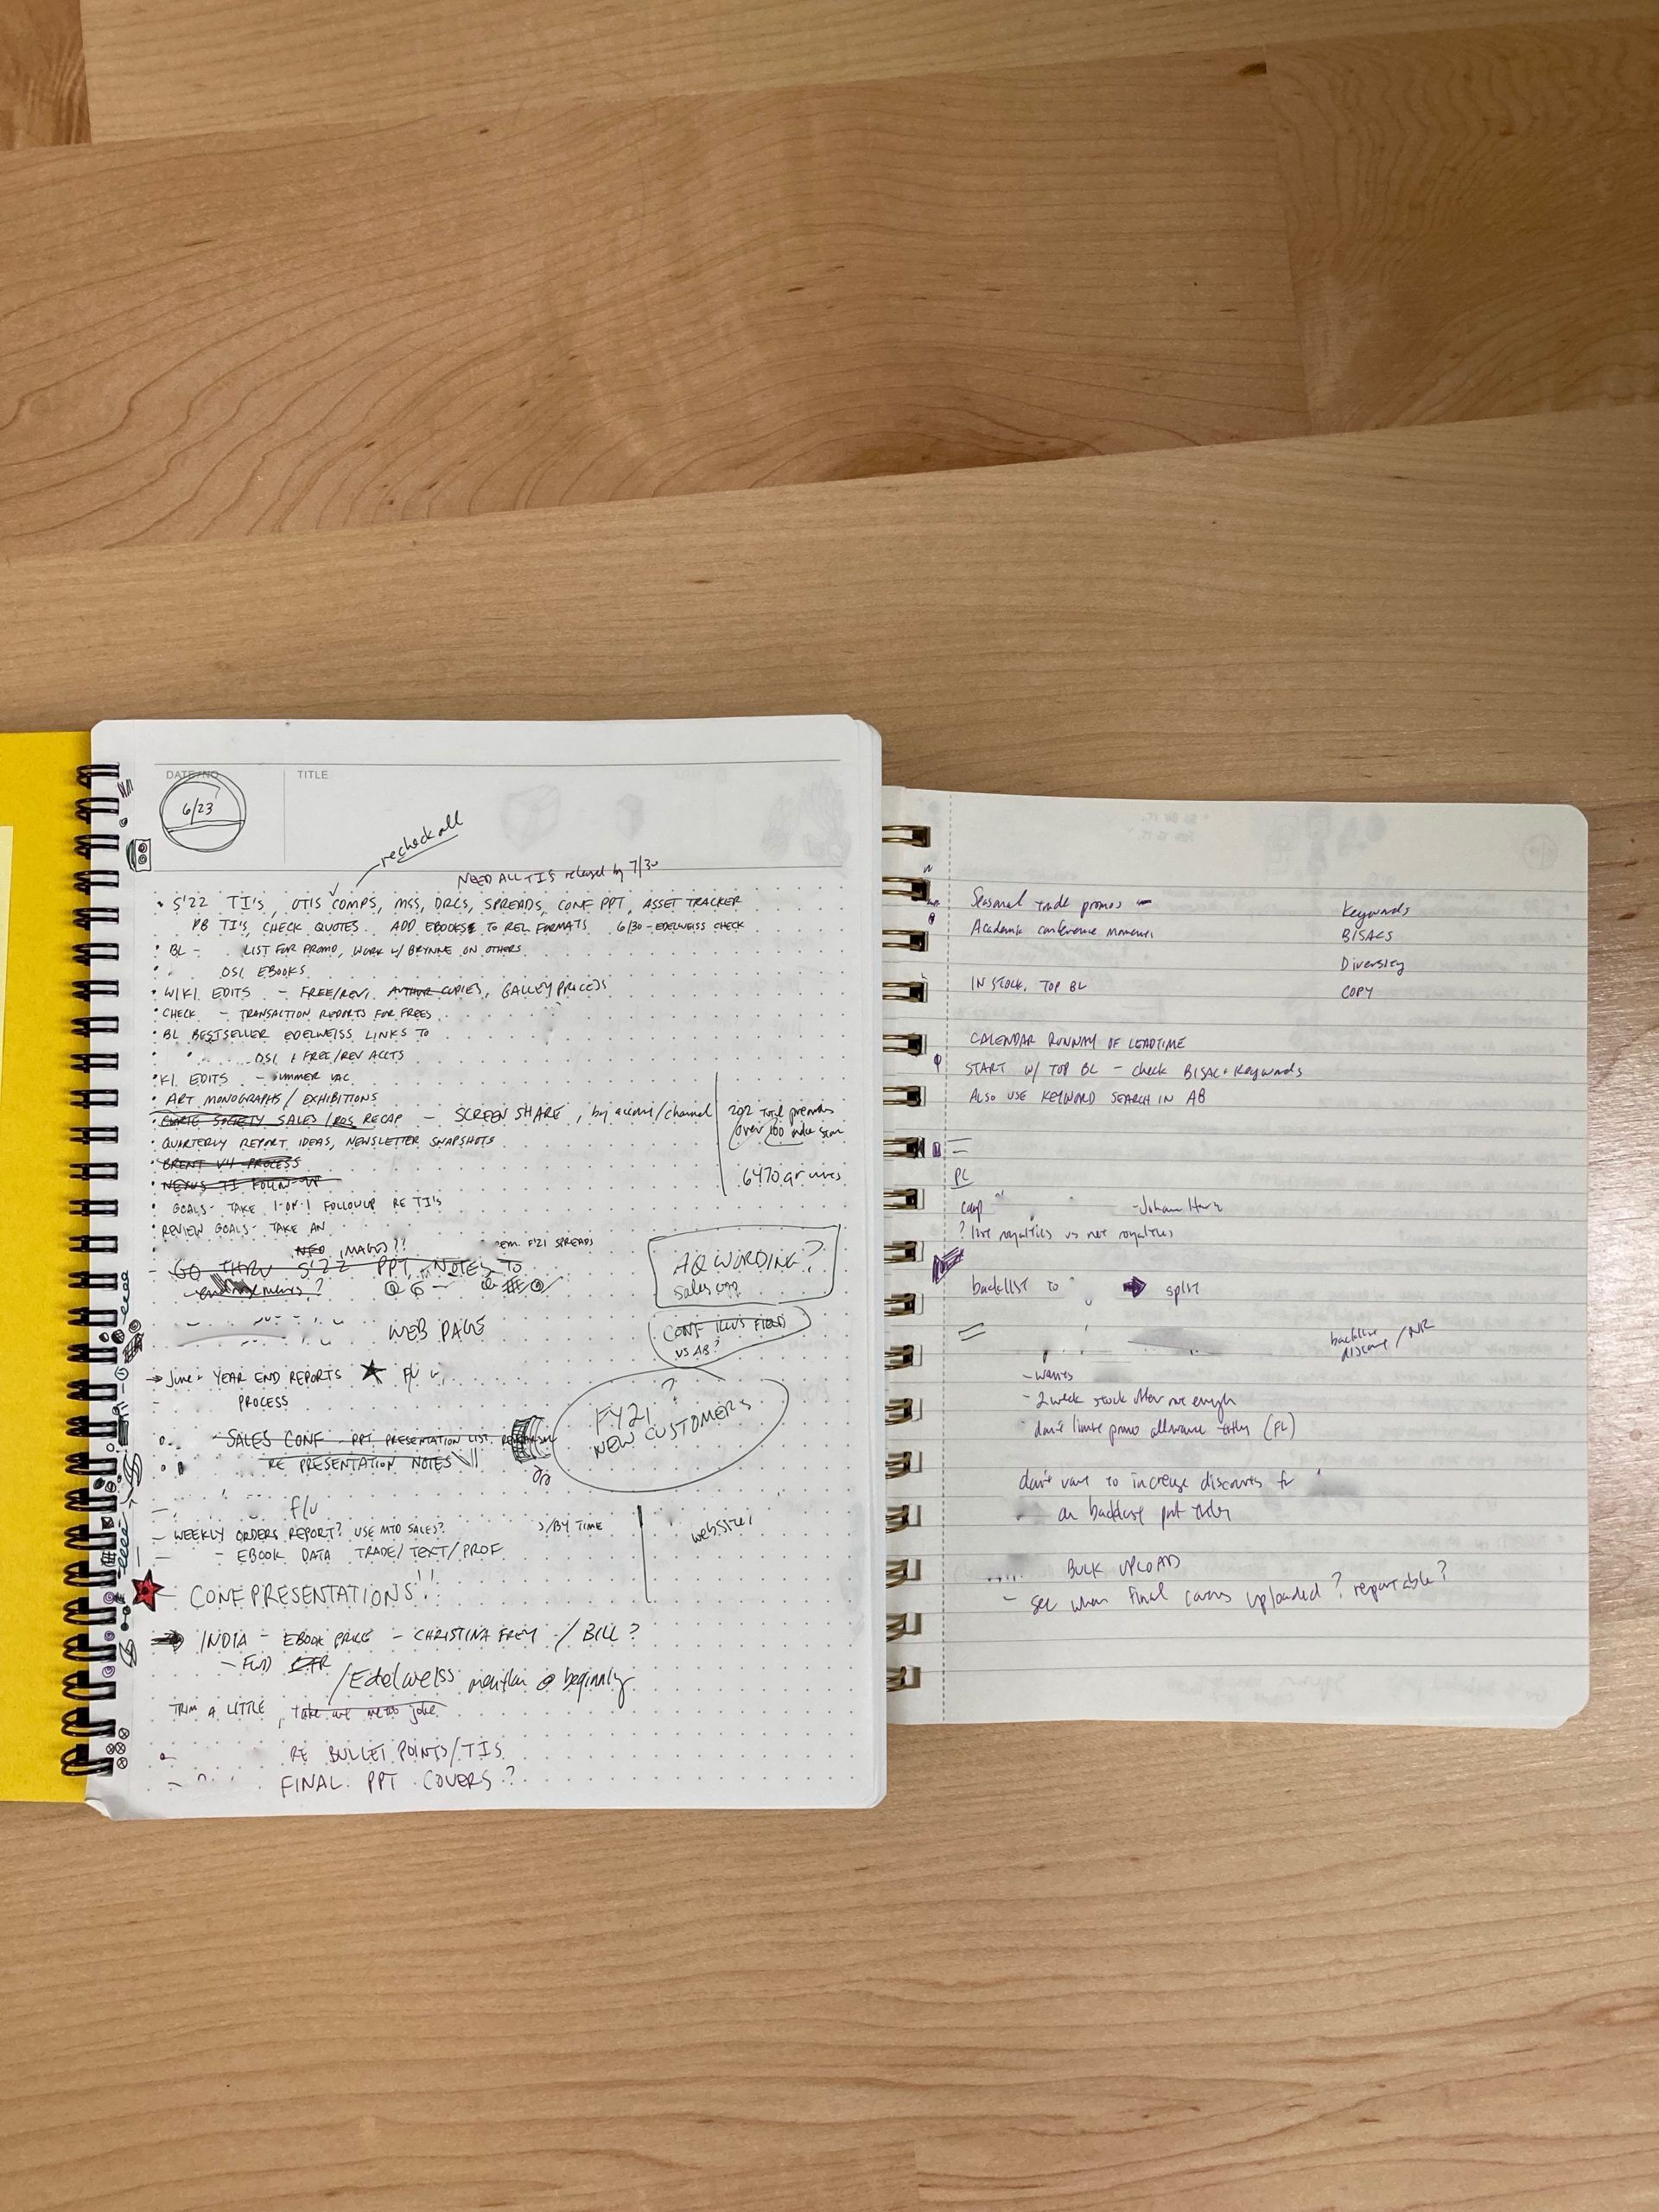 DATE/NO
TITLE
6/23
recheck all
NEED ALL TIS released by 7/30
S'22 TI'S, OTIS COMPS, MSS, DRCS, SPREADS, CONF PPT, ASSET TRACKER
PB TI'S, CHECK QUOTES. ADD EBOOKS TO REL FORMATS 6/30 - EDELWEISS CHECK
BL - LIST FOR PROMO, WORK W/ BRYNNE ON OTHERS
OSI EBOOKS
WIKI EDITS - FREE/REV, AUTHOR COPIES, GALLEY PRICES
CHECK - TRANSACTION REPORTS FOR FREES
BL BESTSELLER EDELWEISS LINKS TO
OSI & FREE/REV ACCTS
KI EDITS - SUMMER VAC
ART MONOGRAPHS / EXHIBITIONS
SOCIETY SALES / ROS RECAP - SCREEN SHARE, by account/channel
202 total
over 100
QUARTERLY REPORT, IDEAS, NEWSLETTER SNAPSHOTS
BRENT V4 PROCESS
NEXUS TI FOLLOW-UP
6470
GOALS - TAKE 1-OF-1 FOLLOWUP RE TI'S
REVIEW GOALS - TAKE AN
IMAGES?!
F'21 SPREADS
GO THRU S'22 PPT NOTES TO
AQ WORDING?
Sales opp
WEB PAGE
CONF ILLUS FIELD
VS AB?
June - YEAR END REPORTS ★ F/U
PROCESS
?
FY21
NEW CUSTOMERS
SALES CONF - PPT PRESENTATION LIST
RE PRESENTATION NOTES
F/U
WEEKLY ORDERS REPORT? USE MTD SALES? /BY TIME
website
- EBOOK DATA TRADE/TEXT/PROF
CONF PRESENTATIONS!!
INDIA - EBOOK PRICE - CHRISTINA FREY / BILL?
- FWD
/Edelweiss mention @ beginning
TRIM A LITTLE,
RE BULLET POINTS/TIS
FINAL PPT COVERS?
Seasonal trade promos -
Academic conference
IN STOCK, TOP BL
Keywords
BISACS
Diversity
COPY
CALENDAR RUNWAY OF LEADTIME
START W/ TOP BL - check BISAC + Keywords
ALSO USE KEYWORD SEARCH IN AB
PL
comp
? list royalties vs not royalties
backlist to → split
backlist
discount / NR
- wants
- 2 week stock offer not enough
- don't limit promo allowance (FL)
don't want to increase discounts for
on backlist
BULK UPLOADS
- see when final covers uploaded? reportable?